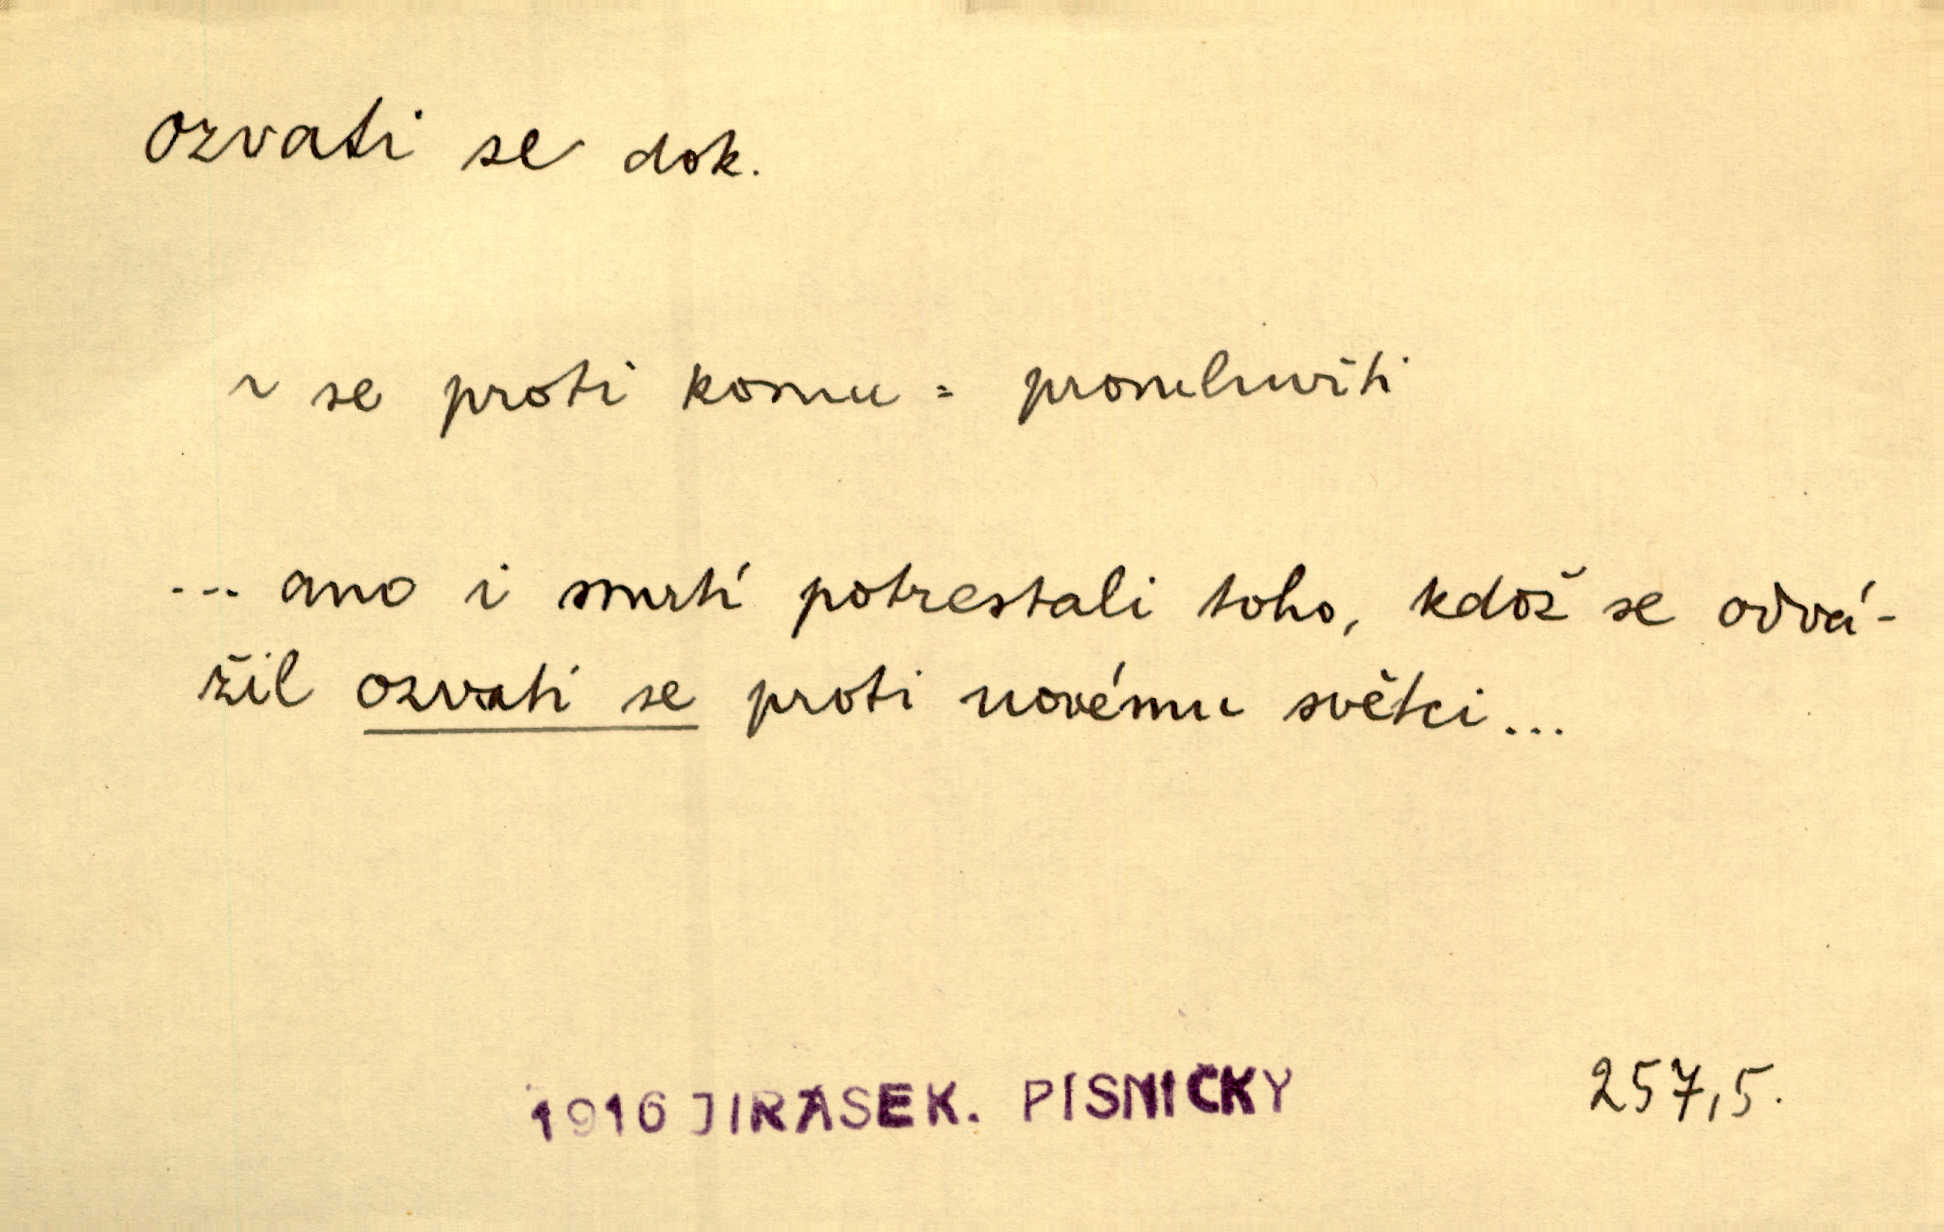 ozvati se dok.
~ se proti komu = promluviti
... ano i smrtí potrestali toho, kdož se odvá-
žil ozvati se proti novému světci...
1916 JIRÁSEK. PÍSNIČKY 257,5.